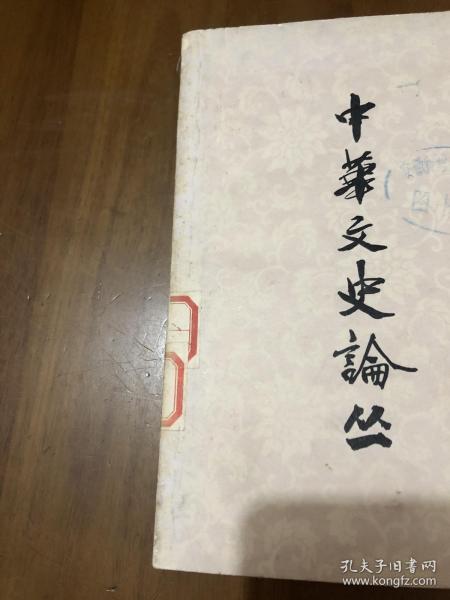 中華文史論丛
孔夫子旧书网
www.kongfz.com